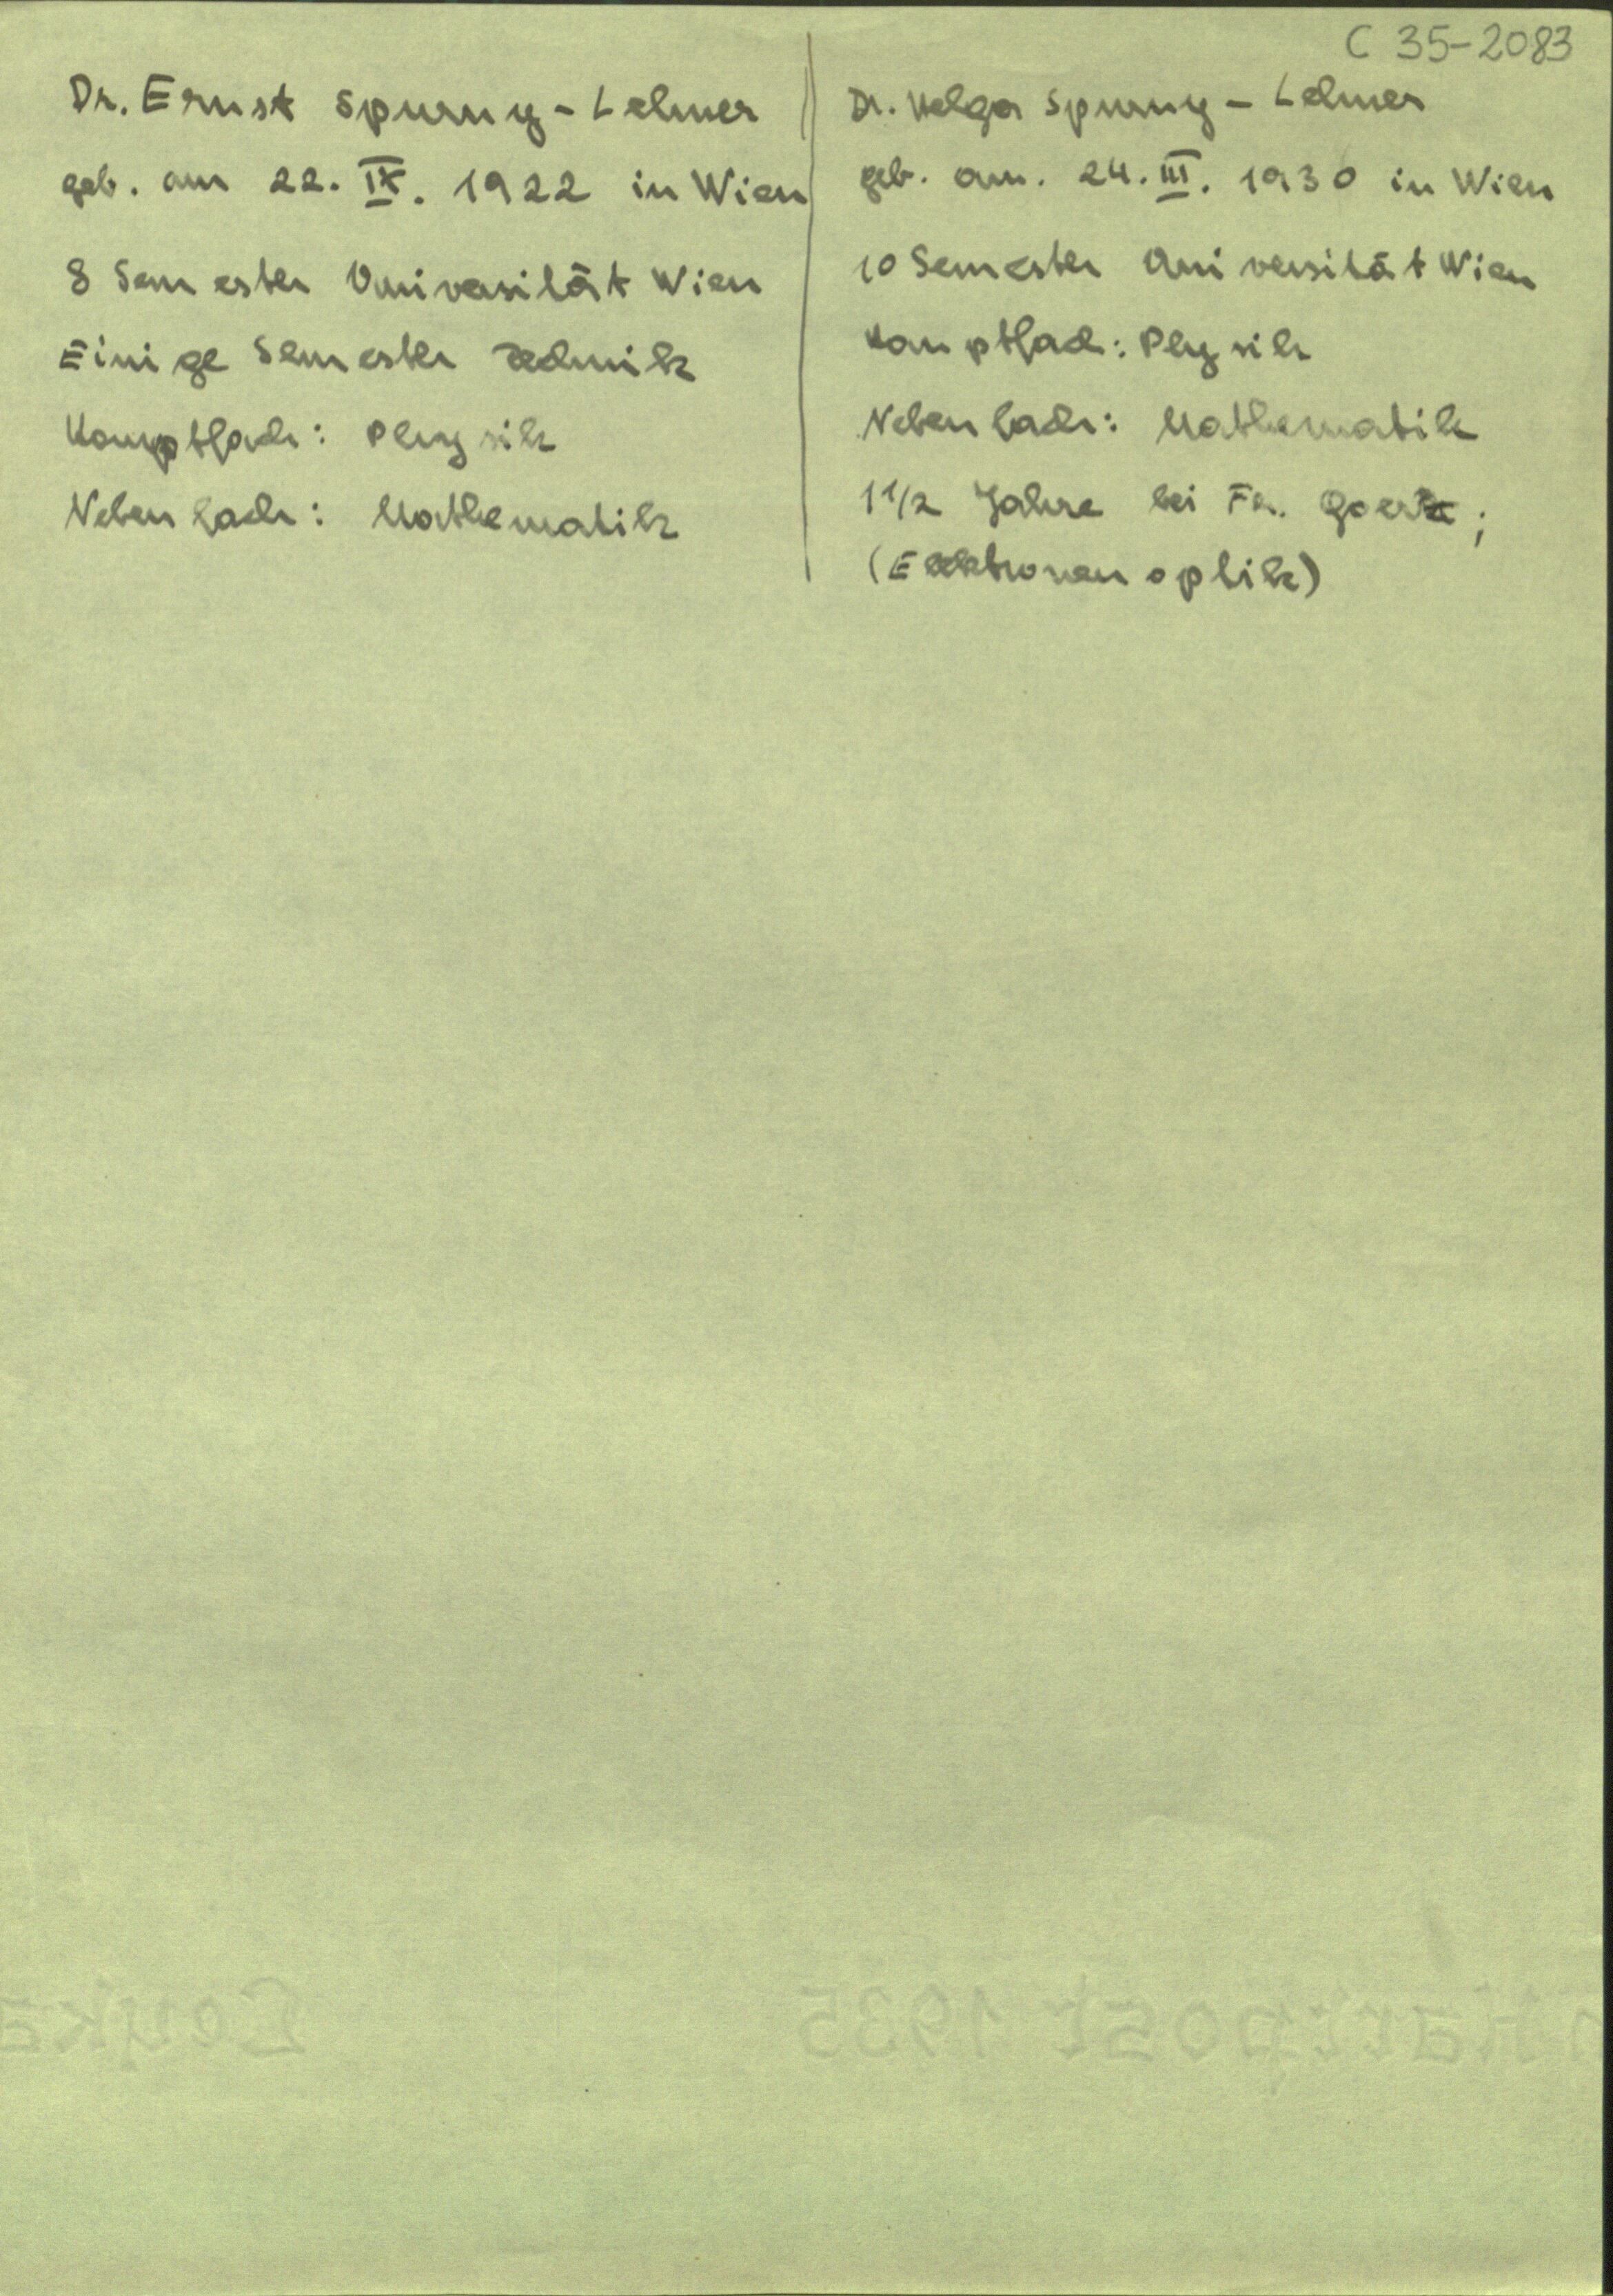 C 35-2083
Dr. Ernst Spurny - Lehner
geb. am 22. IX. 1922 in Wien
8 Semester Universität Wien
Einige Semester Technik
Hauptfach: Physik
Nebenfach: Mathematik
Dr. Helga Spurny - Lehner
geb. am. 24. III. 1930 in Wien
10 Semester Universität Wien
Hauptfach: Physik
Nebenfach: Mathematik
1 1/2 Jahre bei Fa. Goerz;
(Elektronenoptik)